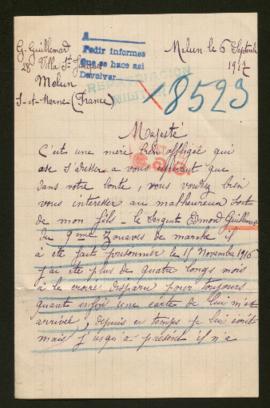 G. Guillemard
A
Pedir informes
Que se hace así
Devolver
Melun le 6 Septembre
1917
Villa St
Melun
S-et-Marne (France)
X 8523
Majesté
C'est une mère bien affligée qui
ose s'adresser a vous espérant que
dans votre bonté, vous voudrez bien
vous interesser au malheureux sort
de mon fils le Sergent Edmond Guillemard
du 9eme Zouaves de marche il
a été faite prisonnier le 15 Novembre 1916
j'ai été plus de quatre longs mois
à le croire disparu pour toujours
quant enfin une cartes de lui m'est
arrivée, depuis ce temps je lui écrit
mais jusqu'a présent il n'a